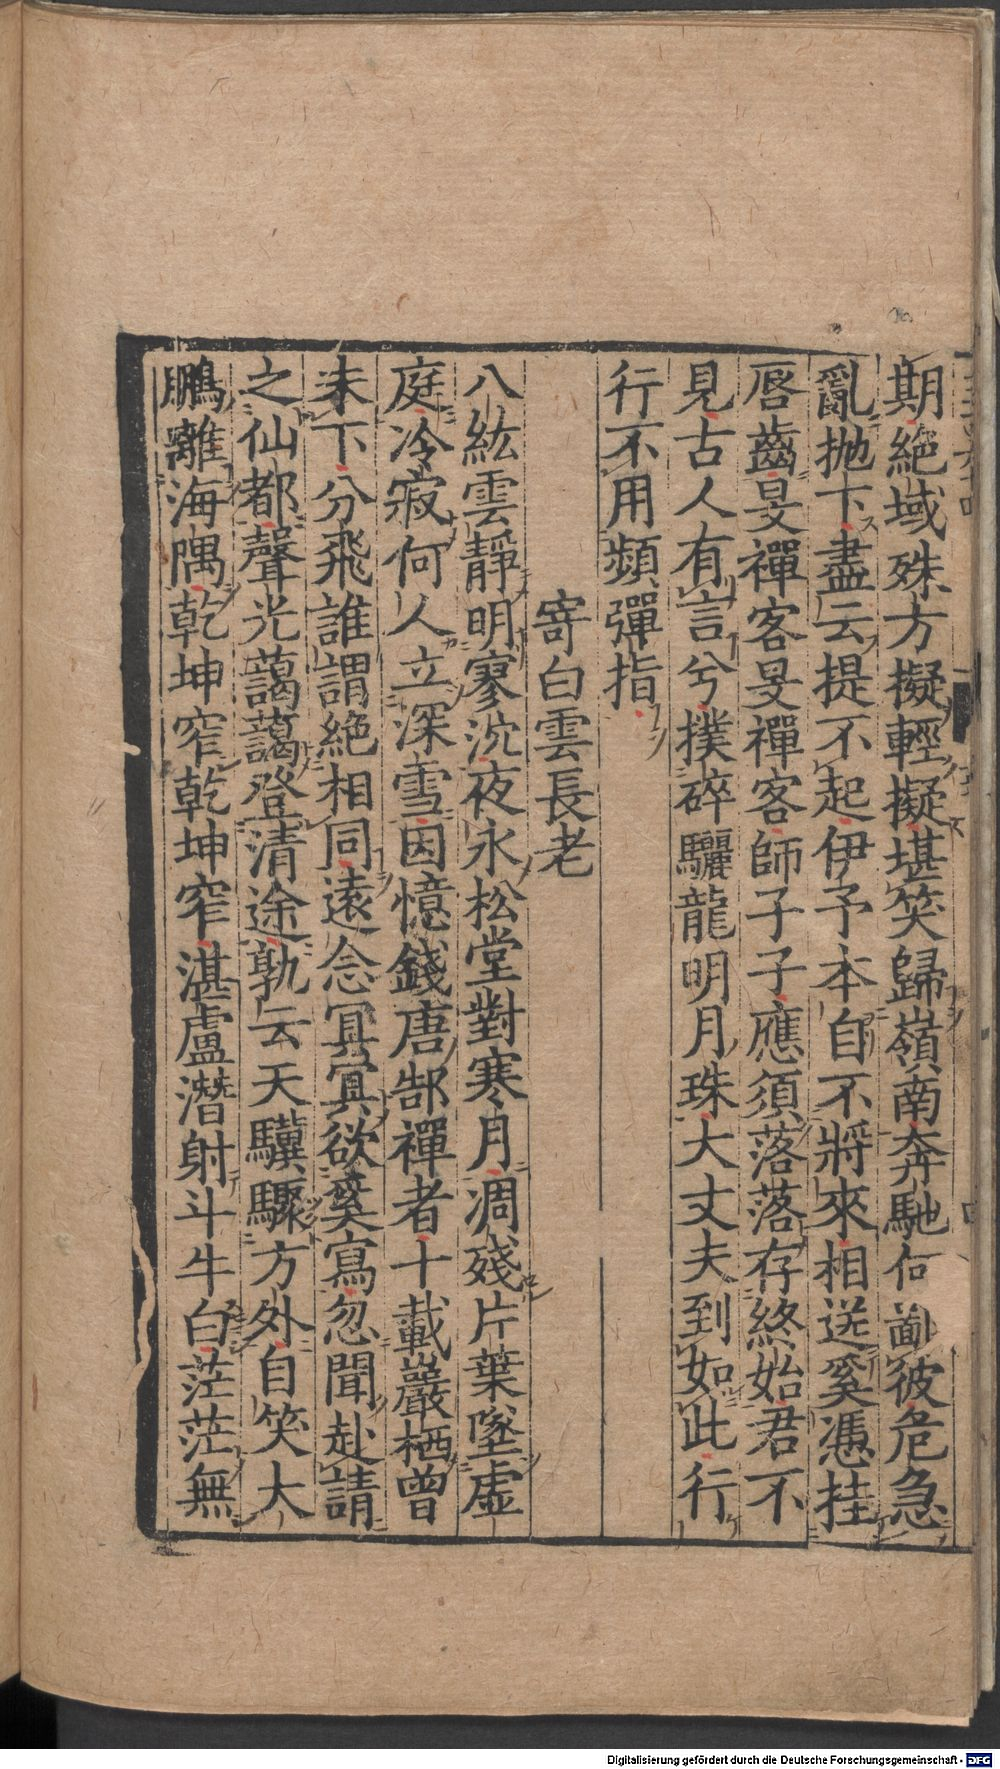 期絶域殊方擬輕擬堪笑歸嶺南奔馳何啚彼危急
亂抛下盡云提不起伊予本自不將來相送奚憑挂
唇齒旻禪客旻禪客師子子應須落落存終始君不
見古人有言兮撲碎驪龍明月珠大丈夫到如此行
行不用頻彈指
寄白雲長老
八紘雲靜明寥沉夜永松堂對寒月凋殘片葉墜虛
庭冷寂何人立深雪因憶錢唐郜禪者十載巖栖曾
未下分飛誰謂絶相同遠念冥冥欲奚寫忽聞赴請
之仙都聲光藹藹登清途孰云天驥驟方外自笑大
鵬離海隅乾坤窄乾坤窄湛盧潛射斗牛白茫茫無
Digitalisierung gefördert durch die Deutsche Forschungsgemeinschaft - DFG